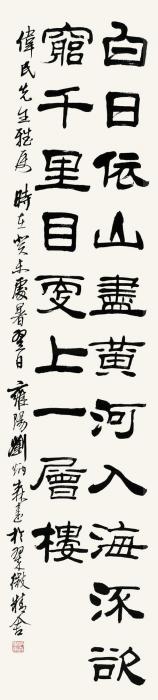 白日依山盡黃河入海流欲
窮千里目更上一層樓
偉民先生雅屬 時在癸未處暑翌日 雍陽劉炳森書於翠微精舍